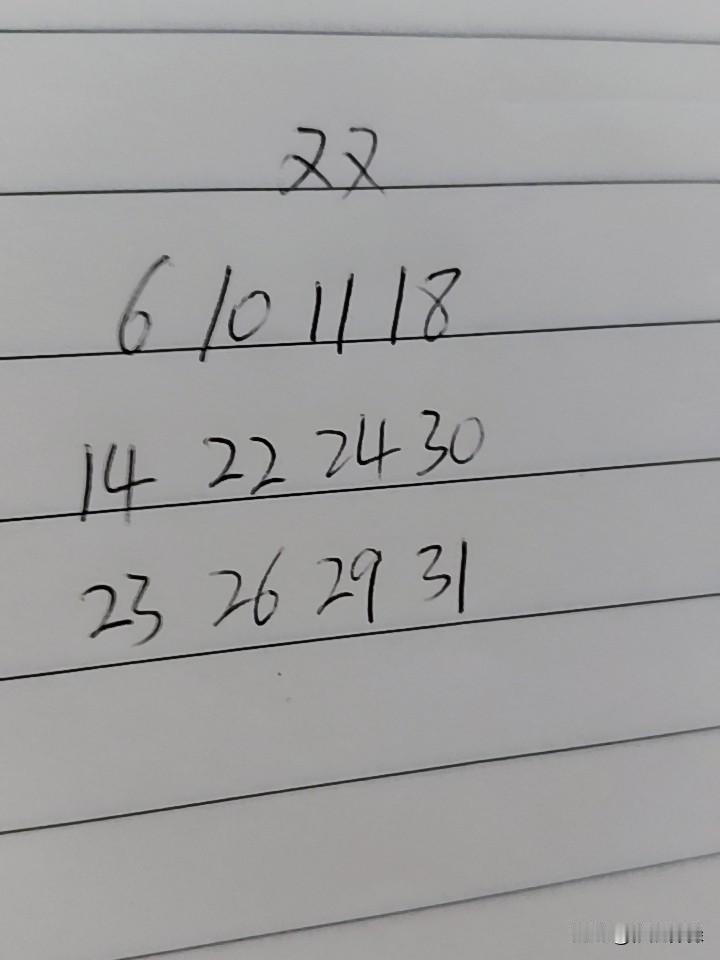 双
6 10 11 18
14 22 24 30
23 26 29 31